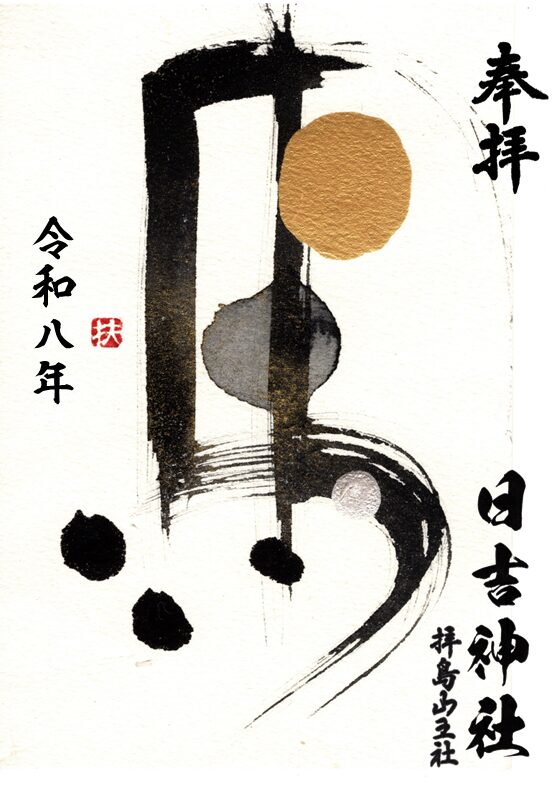 奉拝
日吉神社
拝島山王社
馬
令和八年
扶